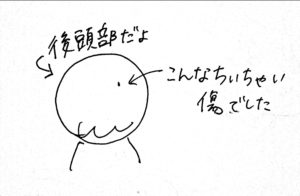 後頭部だよ
こんなちいちゃい
傷でした